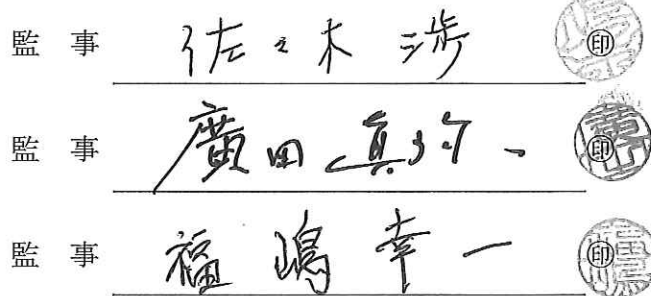 監事 佐々木 渉 ㊞
監事 廣田 真一 ㊞
監事 福嶋 幸一 ㊞